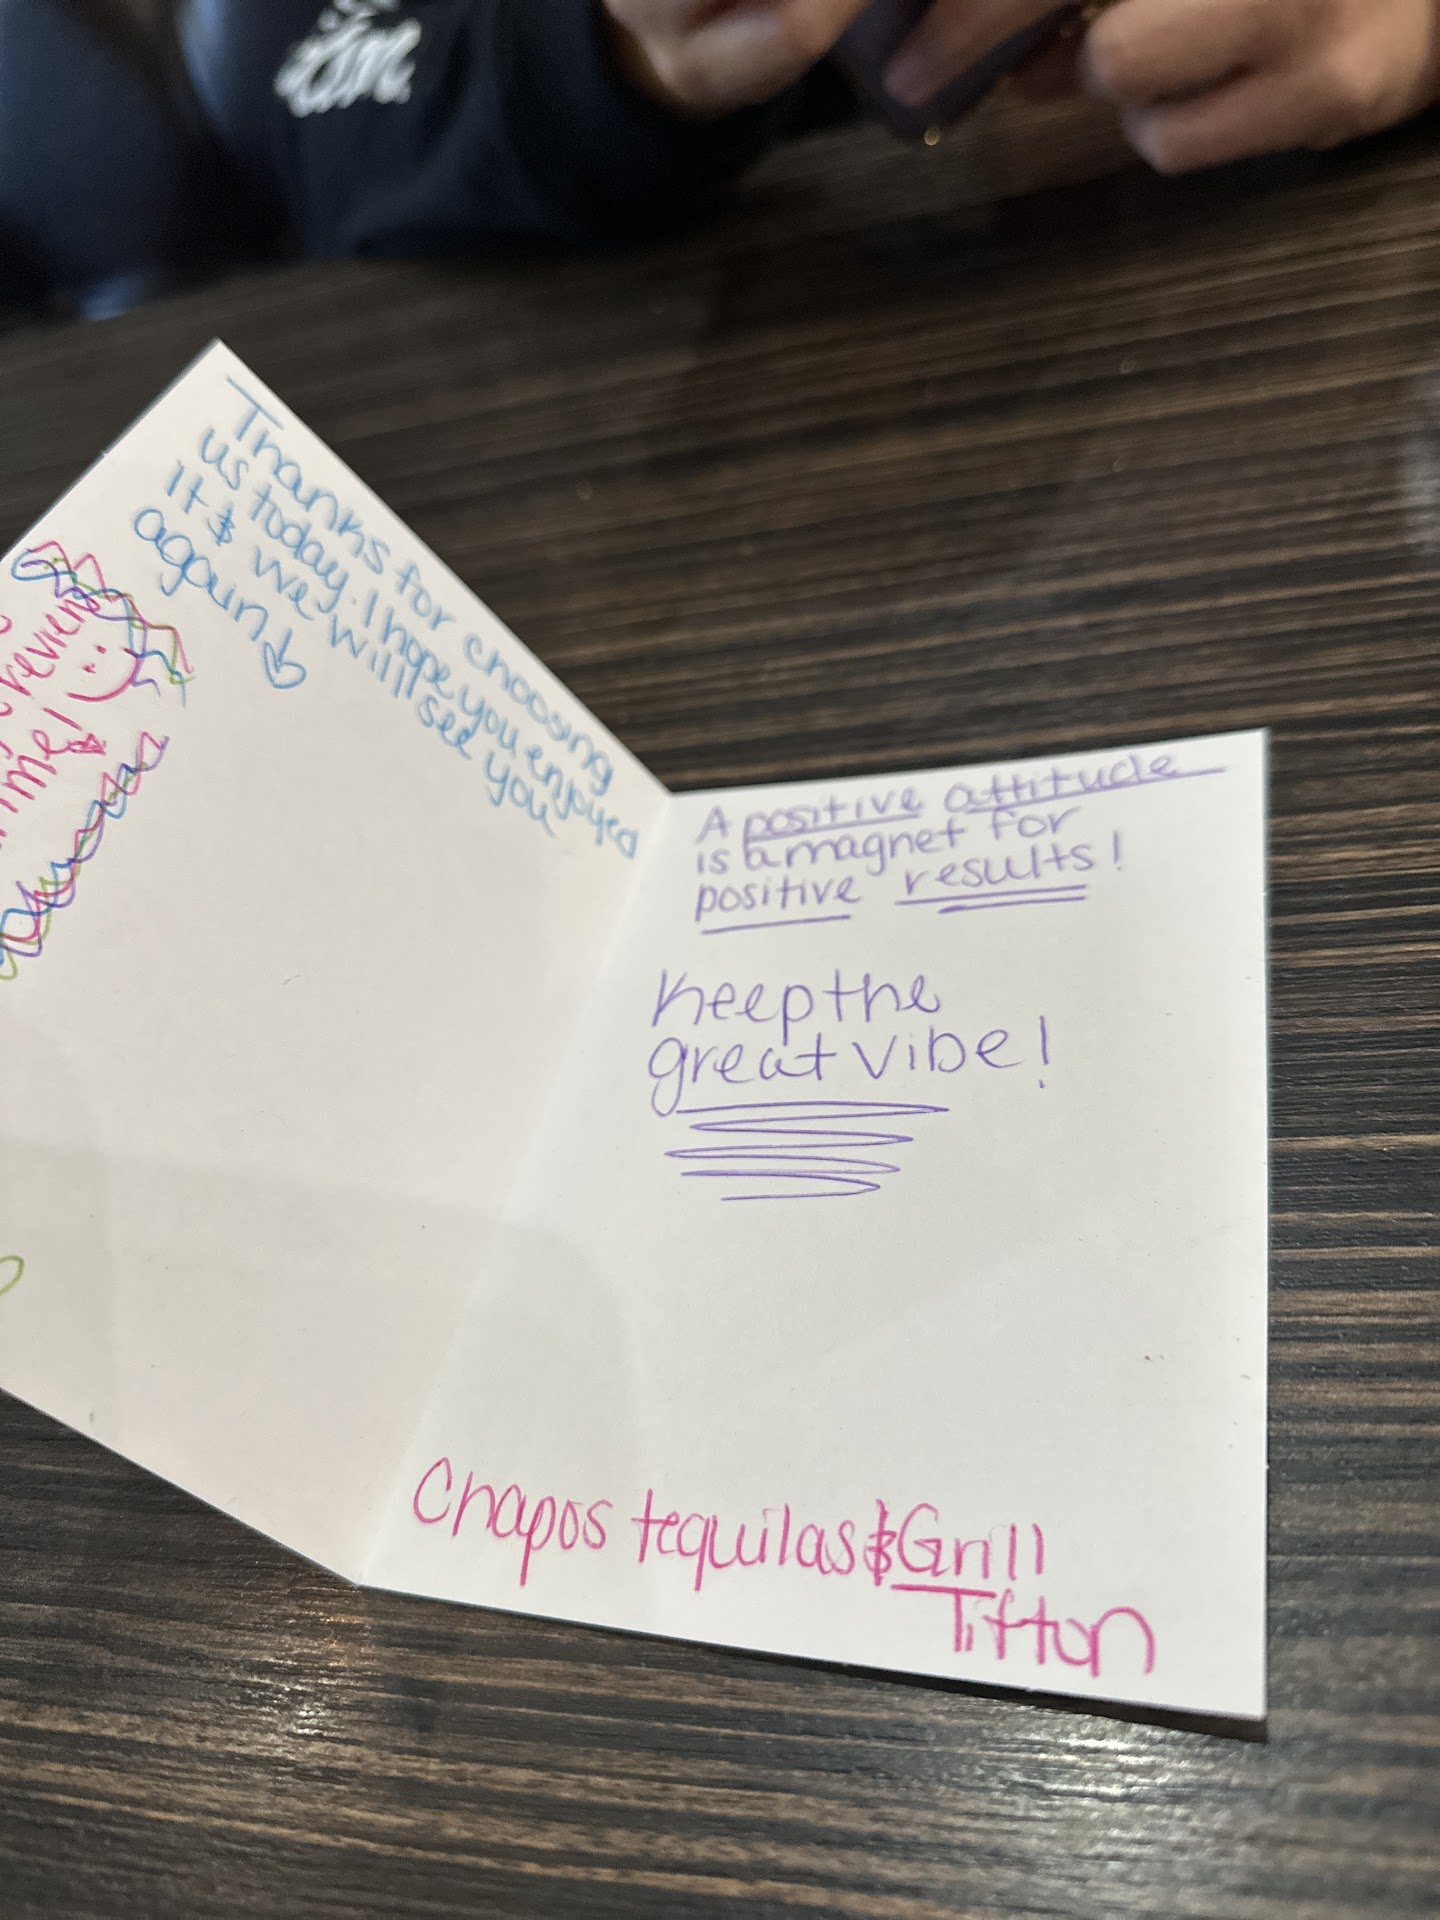 Thanks for choosing
us today. I hope you enjoyed
it & we will see you
again
review
me!
A positive attitude
is a magnet for
positive results!
Keep the
great vibe!
Chapos tequilas & Grill
Tifton